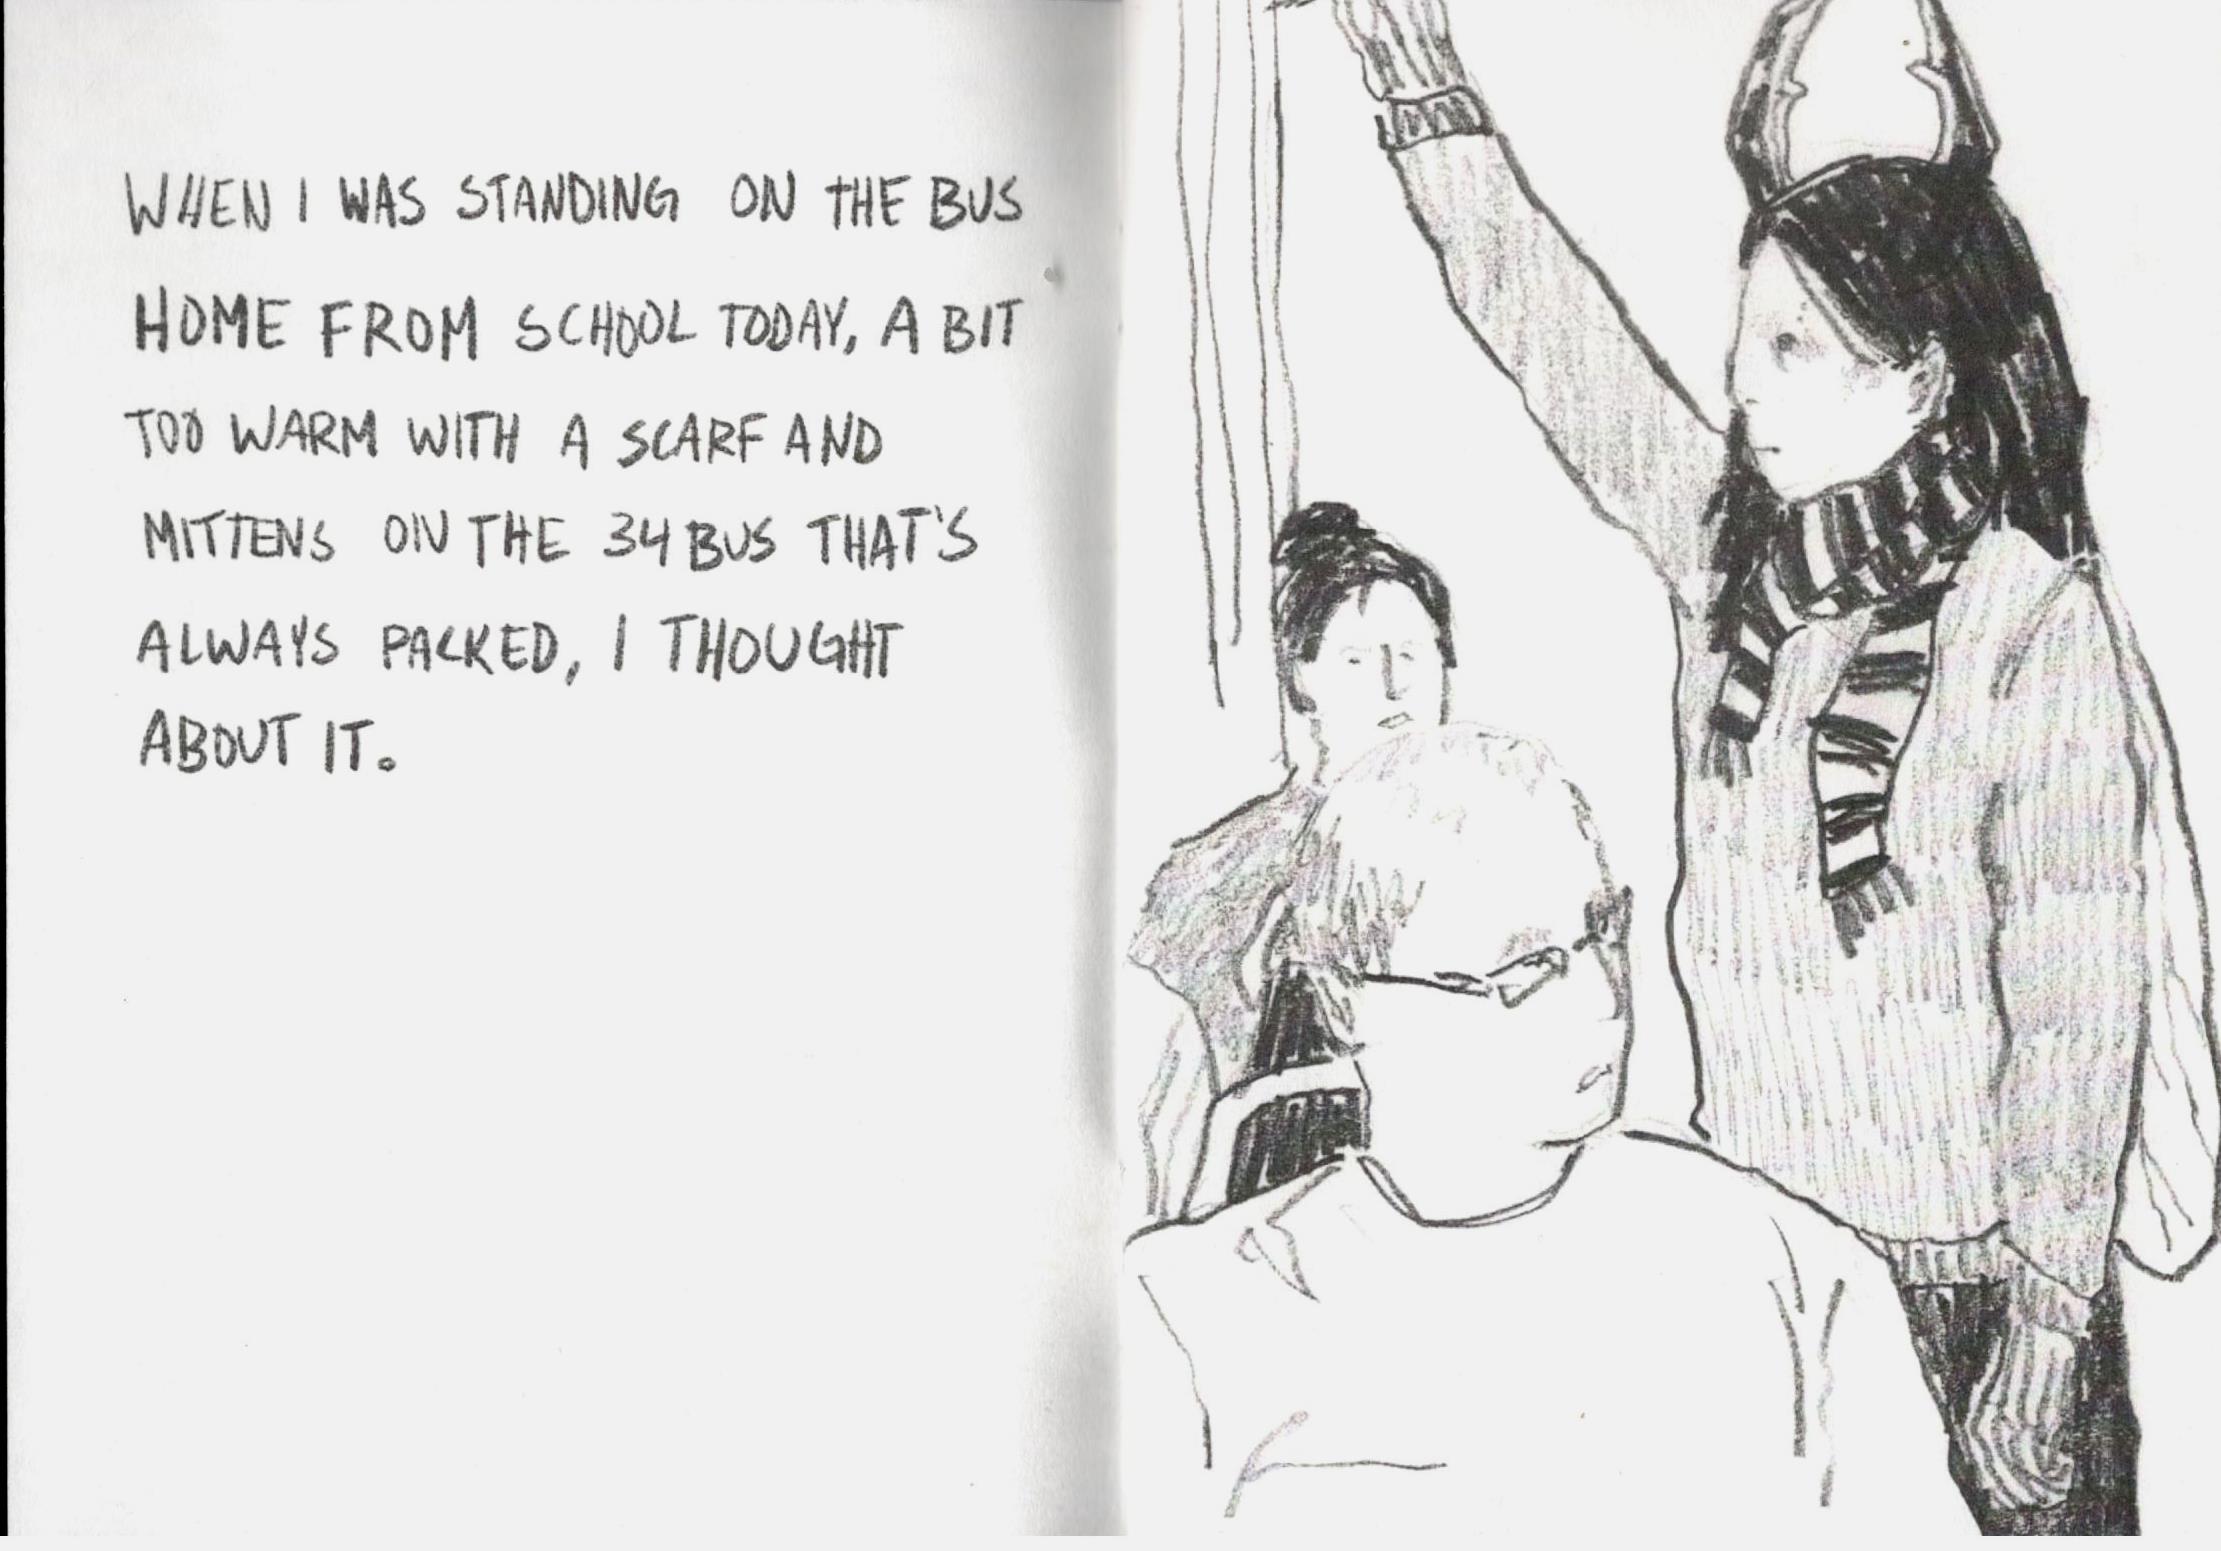 WHEN I WAS STANDING ON THE BUS
HOME FROM SCHOOL TODAY, A BIT
TOO WARM WITH A SCARF AND
MITTENS ON THE 34 BUS THAT'S
ALWAYS PACKED, I THOUGHT
ABOUT IT.